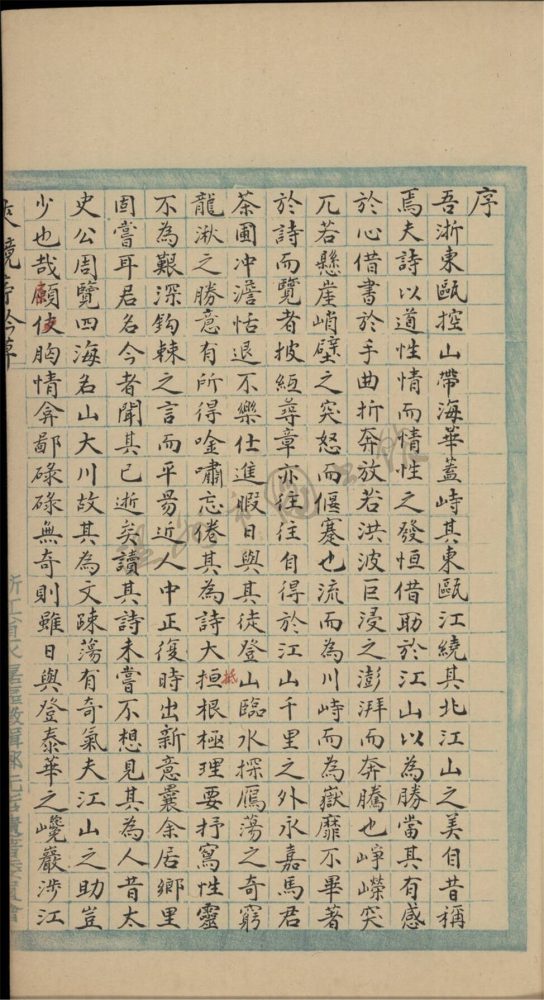 序
吾浙東甌控山帶海華蓋峙其東甌江繞其北江山之美自昔稱
焉夫詩以道性情而情性之發恒借助於江山以為勝當其有感
於心借書於手曲折奔放若洪波巨浸之澎湃而奔騰也崢嶸突
兀若懸崖峭壁之突怒而偃蹇也流而為川峙而為嶽靡不畢著
於詩而覽者披絙尋章亦往往自得於江山千里之外永嘉馬君
茶圃冲澹恬退不樂仕進暇日與其徒登山臨水探鴈蕩之奇窮
龍湫之勝意有所得唫嘯忘倦其為詩大桓根極理要抒寫性靈
抵
不為艱深鈎棘之言而平易近人中正復時出新意曩余居鄉里
固嘗耳君名今者聞其已逝矣讀其詩未嘗不想見其為人昔太
史公周覽四海名山大川故其為文踈蕩有奇氣夫江山之助豈
少也哉顧使胸情弇鄙碌碌無奇則雖日與登泰華之巉巖涉江